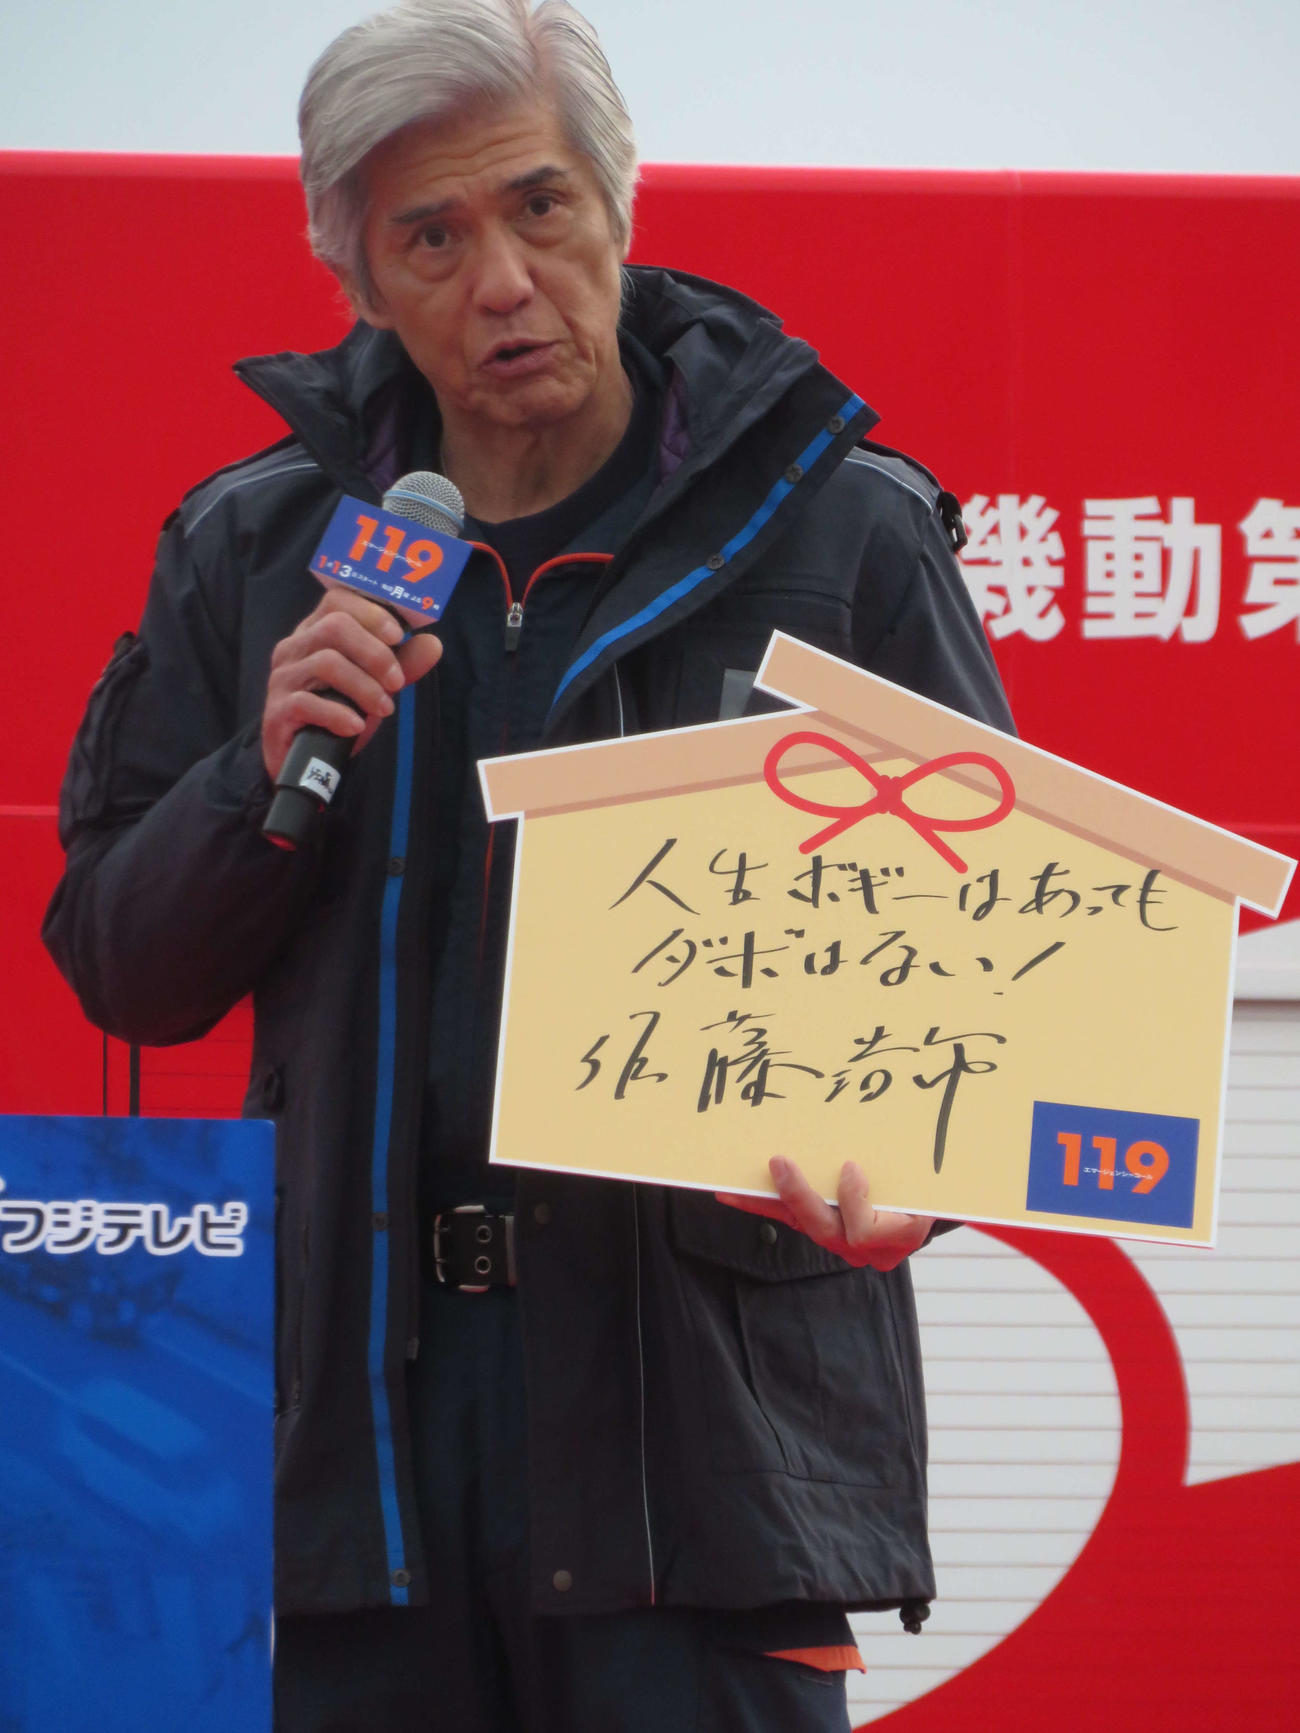 機動第
119
エマージェンシーコール
1月13日スタート 毎週月曜よる9時
人生ボギーはあっても
ダボはない!
佐藤浩市
119
エマージェンシーコール
フジテレビ